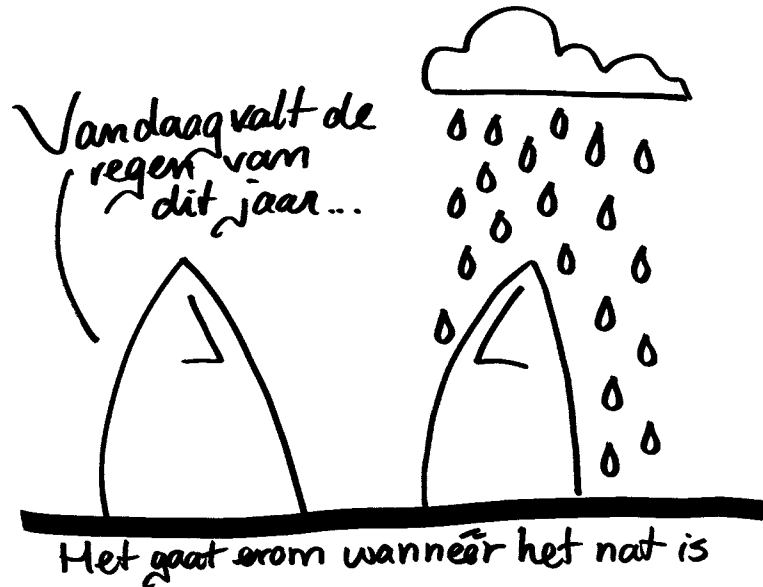 Vandaag valt de
regen van
dit jaar...
Het gaat erom wanneer het nat is